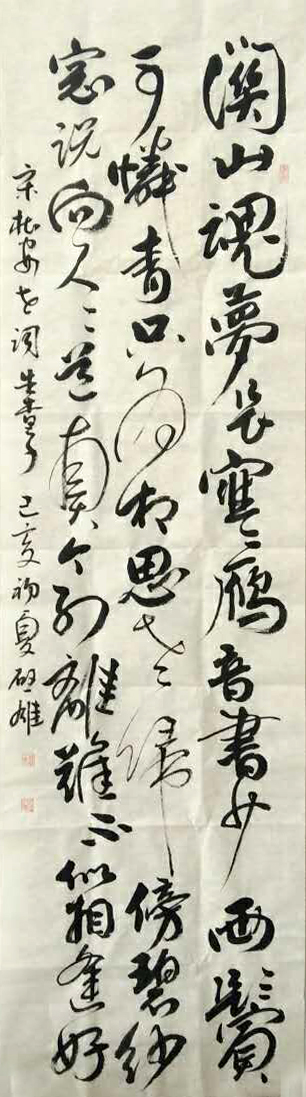 關山魂夢長寒鴈音書少兩鬢
可憐青只為相思老歸傍碧紗
窓說向人〻道真个別離難不似相逢好
宋杜安世詞生查子 己亥初夏雄